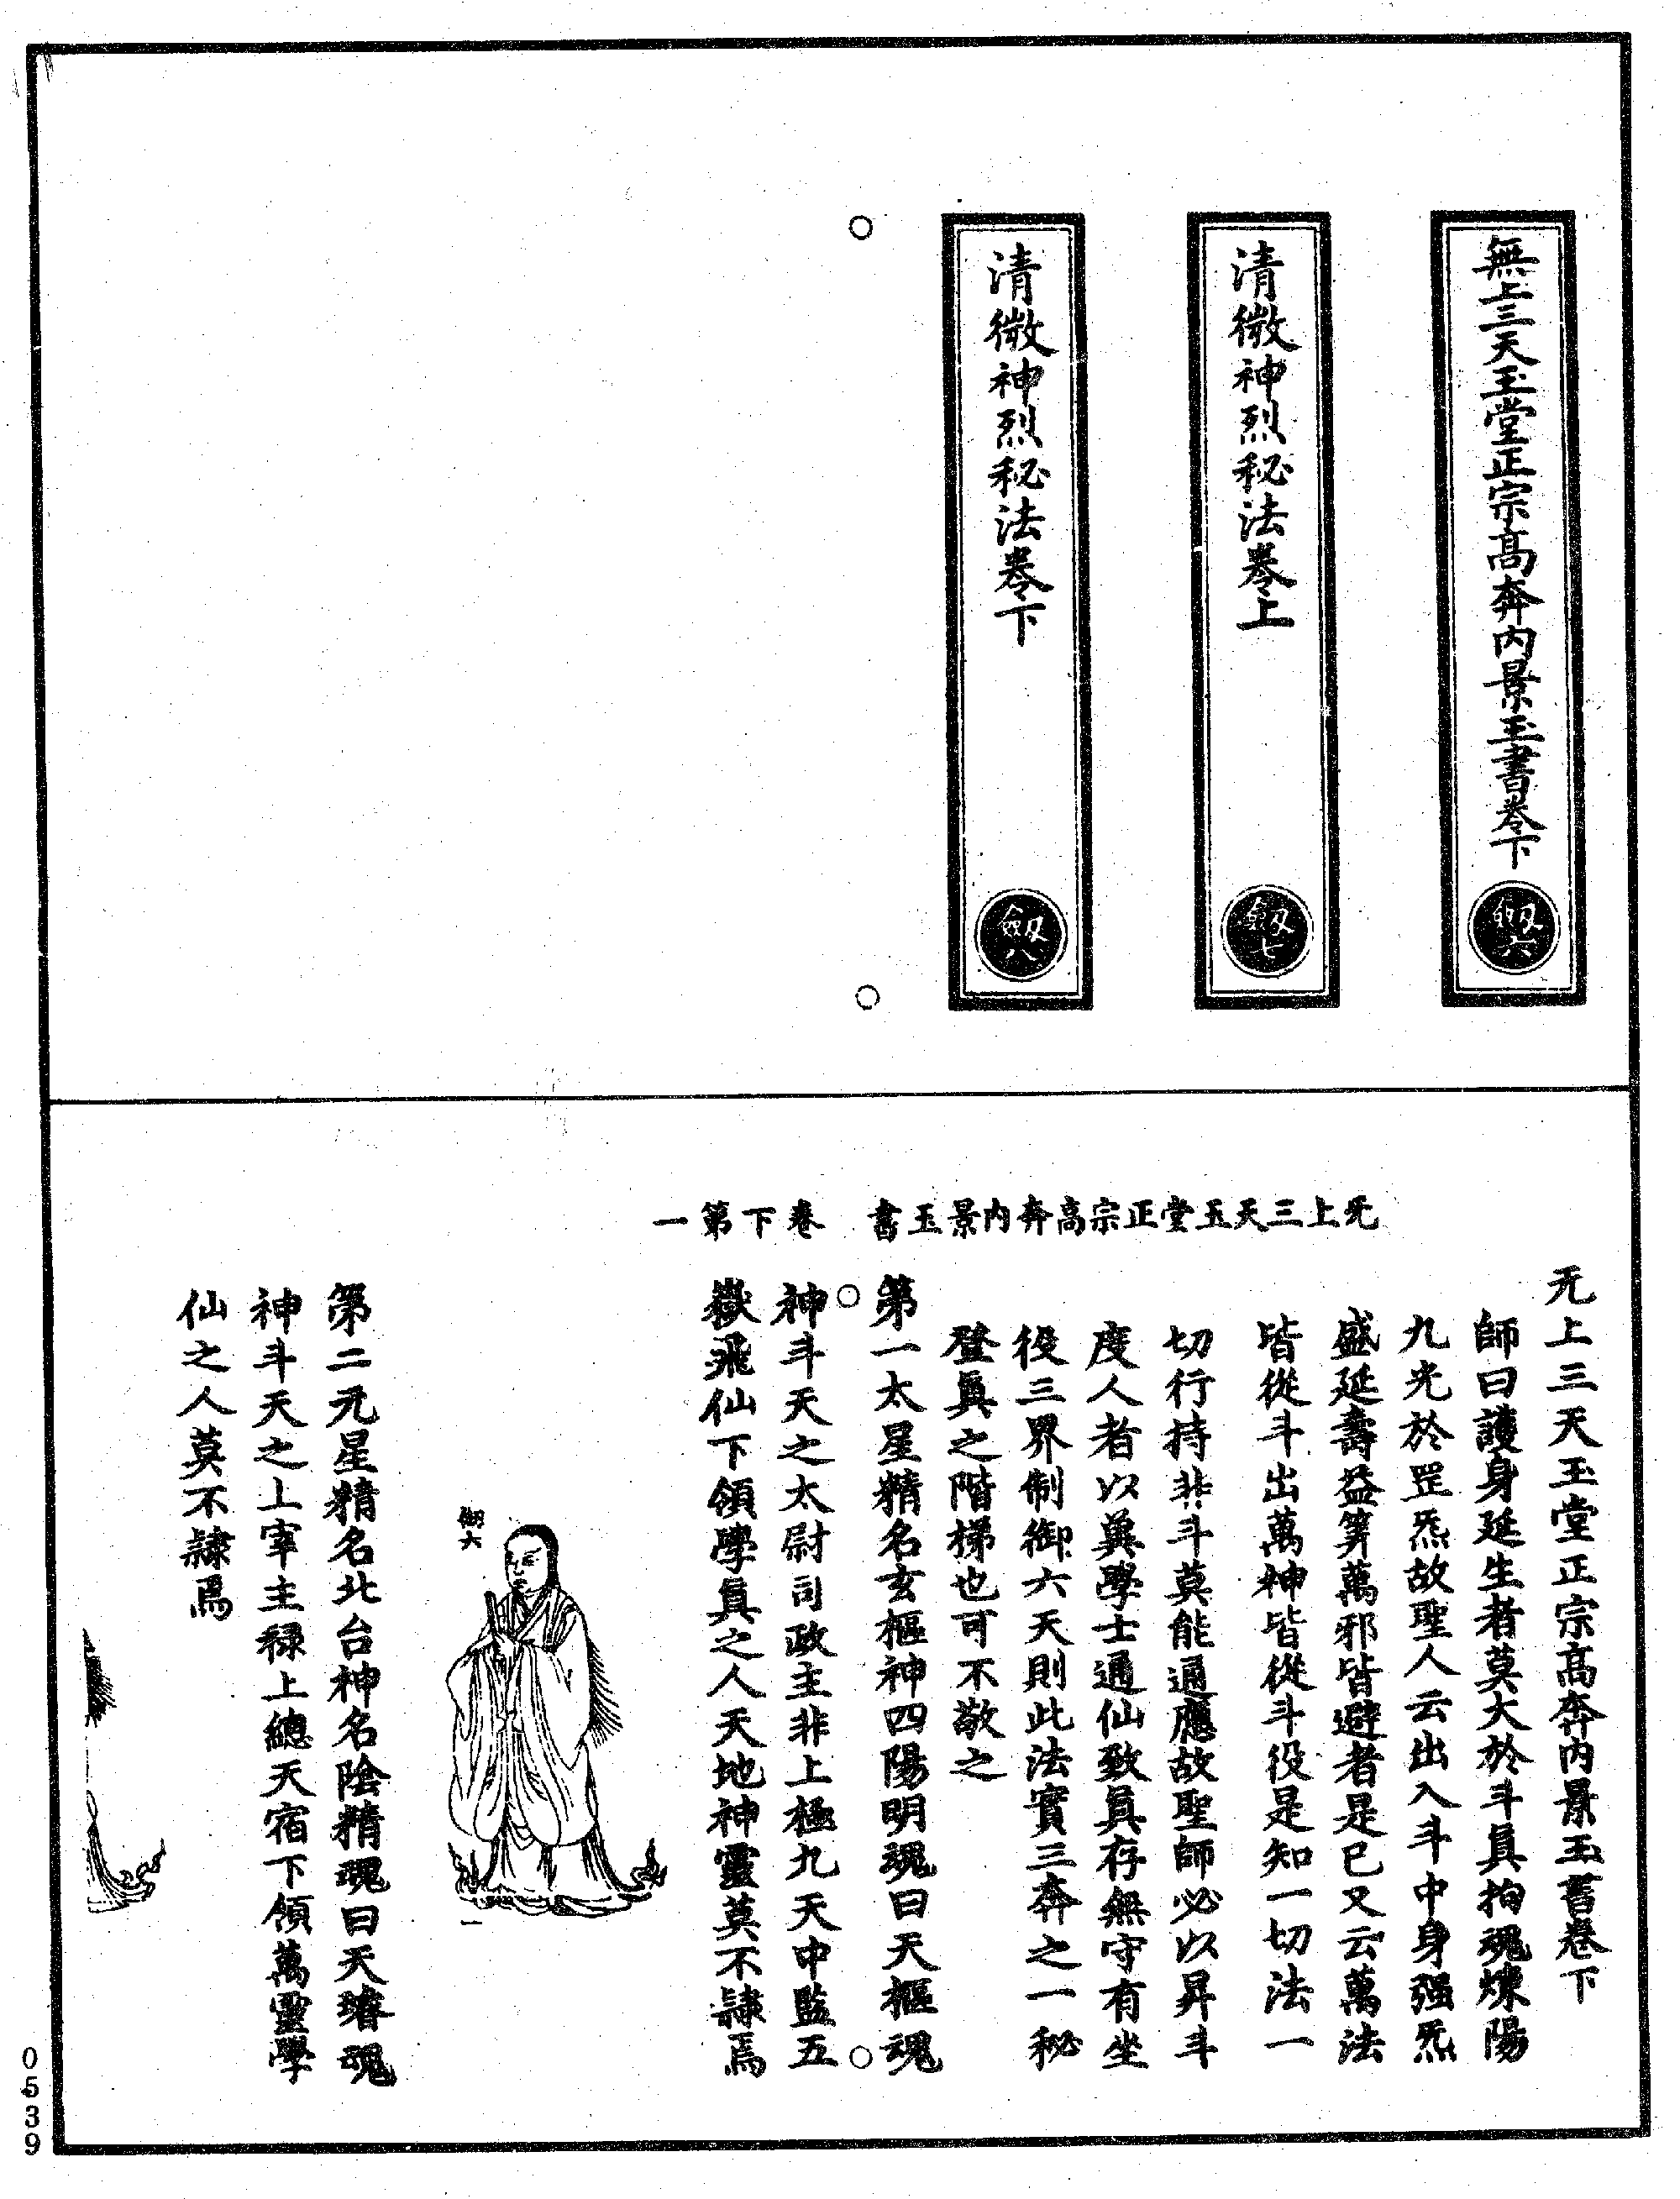 無上三天玉堂正宗髙奔内景玉書卷下
劔六
清微神烈秘法卷上
劔七
清微神烈秘法卷下
劔八
旡上三天玉堂正宗高奔內景玉書 卷下第一
旡上三天玉堂正宗髙奔内景玉書卷下
師曰護身延生者莫大於斗真拘魂煉陽
九光於罡炁故聖人云出入斗中身强炁
盛延壽益筭萬邪皆避者是已又云萬法
皆從斗出萬神皆從斗役是知一切法一
切行持非斗莫能通應故聖師必以昇斗
度人者以兾學士通仙致真存無守有坐
役三界制御六天則此法實三奔之一秘
登真之階梯也可不敬之
第一太星精名玄樞神四陽明魂曰天樞魂
神斗天之太尉司政主非上極九天中監五
嶽飛仙下領學真之人天地神靈莫不隸焉
劔六
一
第二元星精名北台神名陰精魂曰天璿魂
神斗天之上宰主禄上總天宿下領萬靈學
仙之人莫不隸焉
0539